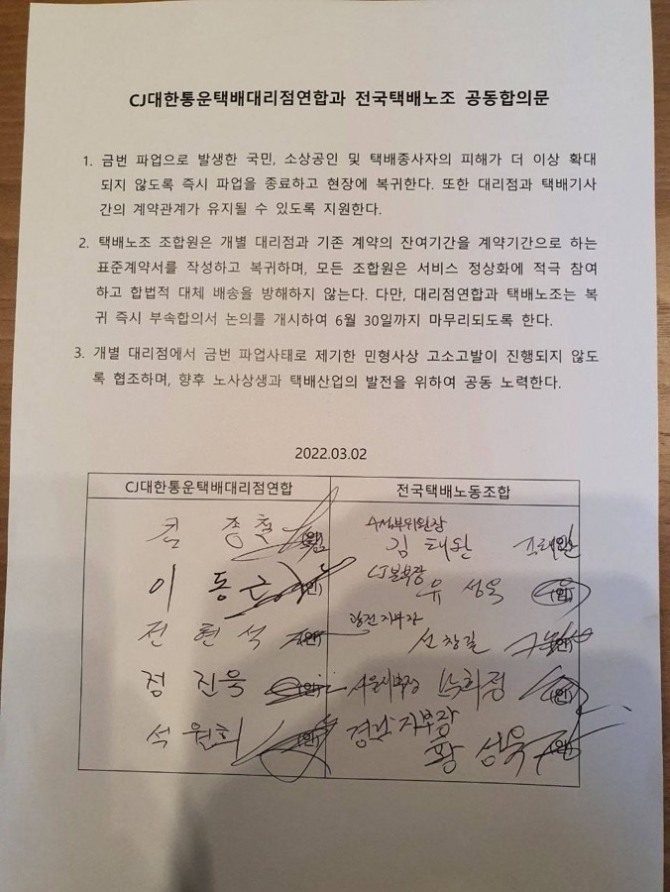 CJ대한통운택배대리점연합과 전국택배노조 공동합의문
1. 금번 파업으로 발생한 국민, 소상공인 및 택배종사자의 피해가 더 이상 확대
되지 않도록 즉시 파업을 종료하고 현장에 복귀한다. 또한 대리점과 택배기사
간의 계약관계가 유지될 수 있도록 지원한다.
2. 택배노조 조합원은 개별 대리점과 기존 계약의 잔여기간을 계약기간으로 하는
표준계약서를 작성하고 복귀하며, 모든 조합원은 서비스 정상화에 적극 참여
하고 합법적 대체 배송을 방해하지 않는다. 다만, 대리점연합과 택배노조는 복
귀 즉시 부속합의서 논의를 개시하여 6월 30일까지 마무리되도록 한다.
3. 개별 대리점에서 금번 파업사태로 제기한 민형사상 고소고발이 진행되지 않도
록 협조하며, 향후 노사상생과 택배산업의 발전을 위하여 공동 노력한다.
2022.03.02
CJ대한통운택배대리점연합 전국택배노동조합
김 종철 (인) 수석부위원장
김 태완
이 동근 (인) CJ본부장
유 성욱 (인)
전 현석 (인) 지부장
(인)
정 진욱 (인) 서울지부장 (인)
석 원희 (인) 경남지부장
황 성욱 (인)